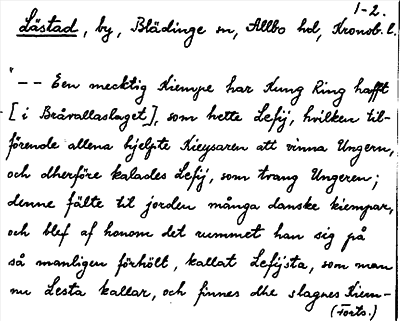 1-2.
Låstad, by, Blädinge sn, Allbo hd, Kronob. l.
"-- Een mecktig Kiempe har Kung Ring hafft
[i Bråvallaslaget], som hette Lefij, hvilken till-
förende allena hjelpte Kieysaren att vinna Ungern,
och dherföre kalades Lefij, som tvang Ungeren;
denne fälte til jorden många danske kiempar,
och blef af honom det rummet han sig på
så manligen förhölt, kallat Lefijsta, som man
nu Lesta kallar, och finnes dhe slagnes Kiem-
(Forts.)